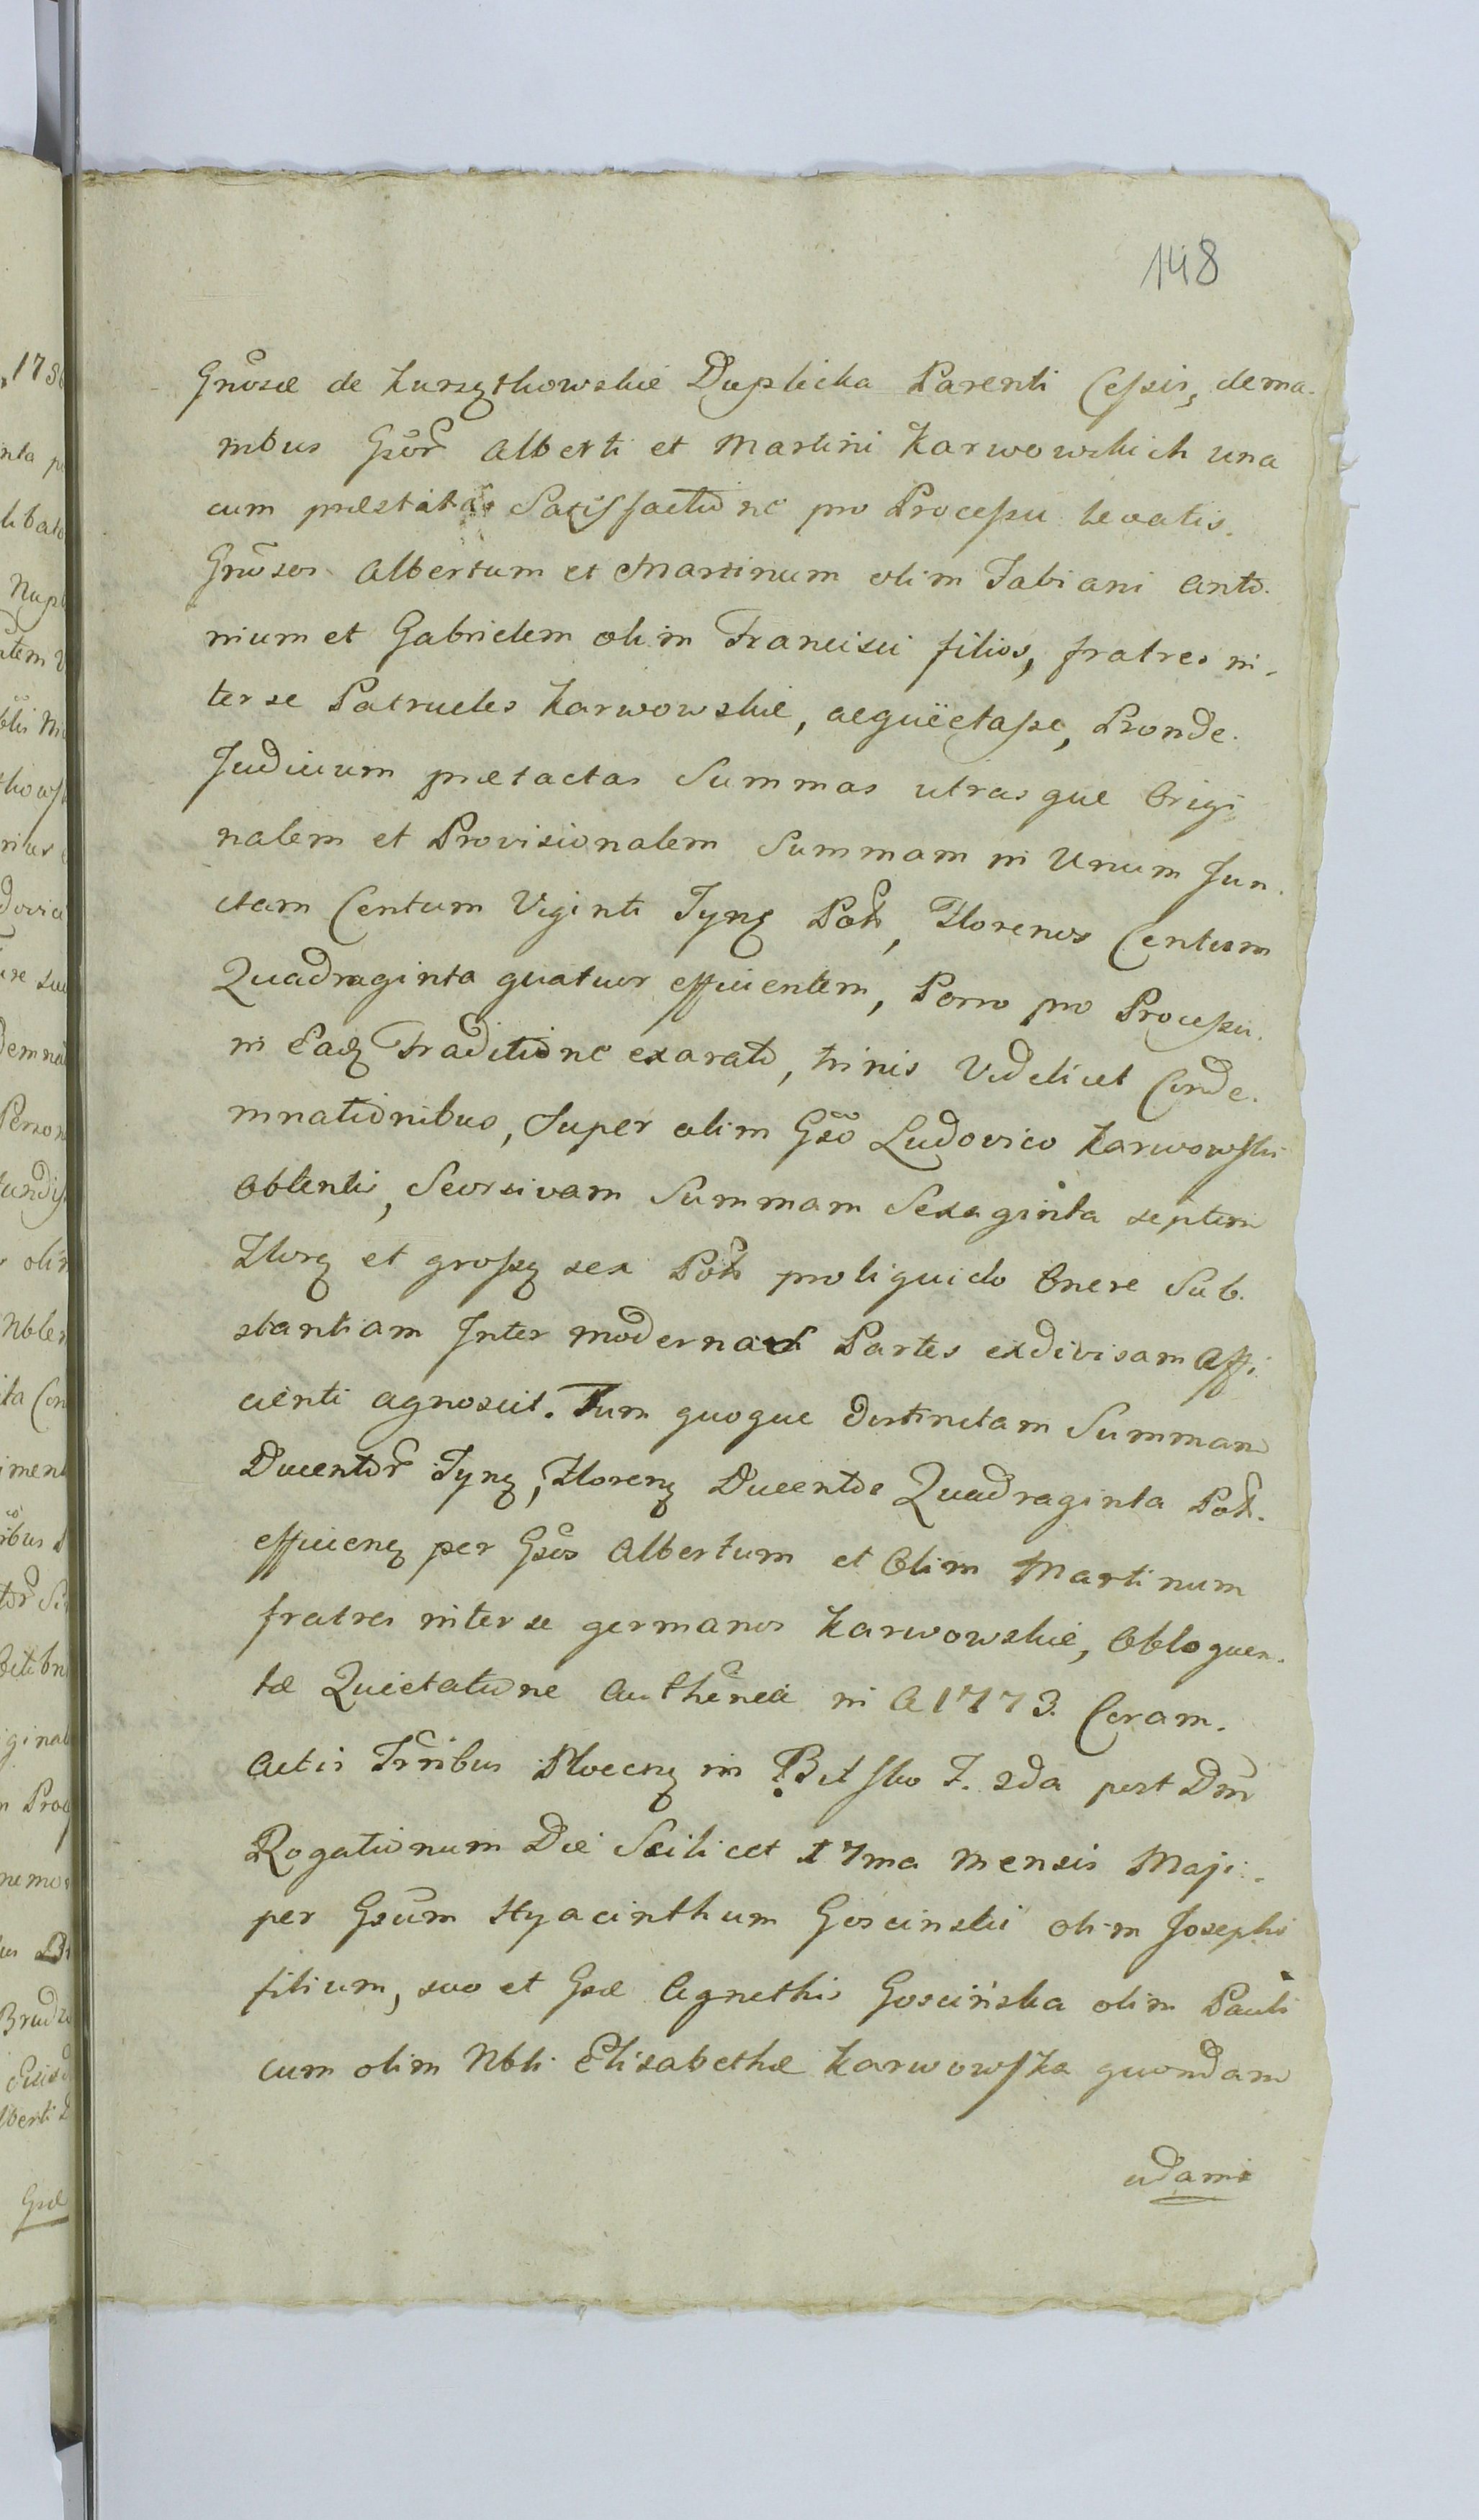 148
Gnosæ de Kurzątkowskie Duplicka Parenti Cessis, dema-
nibus Gsor Alberti et Martini Karwowskich una
cum præstita Satisfactione pro Processu levatis.
Gnosos Albertum et Martinum olim Fabiani Anto-
nium et Gabrielem olim Francisci filios, fratres in-
ter se Patrueles Karwowskie, aequietasse, Pronde.
Judicium prætactas Summas utrasque Origi-
nalem et Provisionalem Summam in Unum Jun-
ctam Centum Viginti Tynf Pol, Florenos Centum
Quadraginta quatuor efficientem, Porro pro Processu.
in Eadq Traditione exarato, trinis Videlicet Conde-
mnationibus, Super olim Gso Ludovico Karwowski
obtentis, Seorsivam Summam Sexaginta septem
Florq et grossq sex Pol pro liquido Onere Sub-
stantiam Inter modernas Partes exdivisam Affi-
cienti agnoscit. Tum quoque distinctam Summam
Ducentor Tynq, Florenq Ducentos Quadraginta Pol.
efficienq per Gsos Albertum et Olim Martinum
fratres inter se germanos Karwowskie, Obloquen-
tæ Quietatione Authencâ in A 1773. Coram.
Actis Trribus Plocenq in Bielsko F. 2da post Dm
Rogationum Die Scilicet 17ma mensis Maji.
per Gsum Hyacinthum Gościnski olim Josephi
filium, suo et Gsæ Agnethis Gościńska olim Pauli
cum olim Nbli Elisabethæ Karwowska quondam
Adami